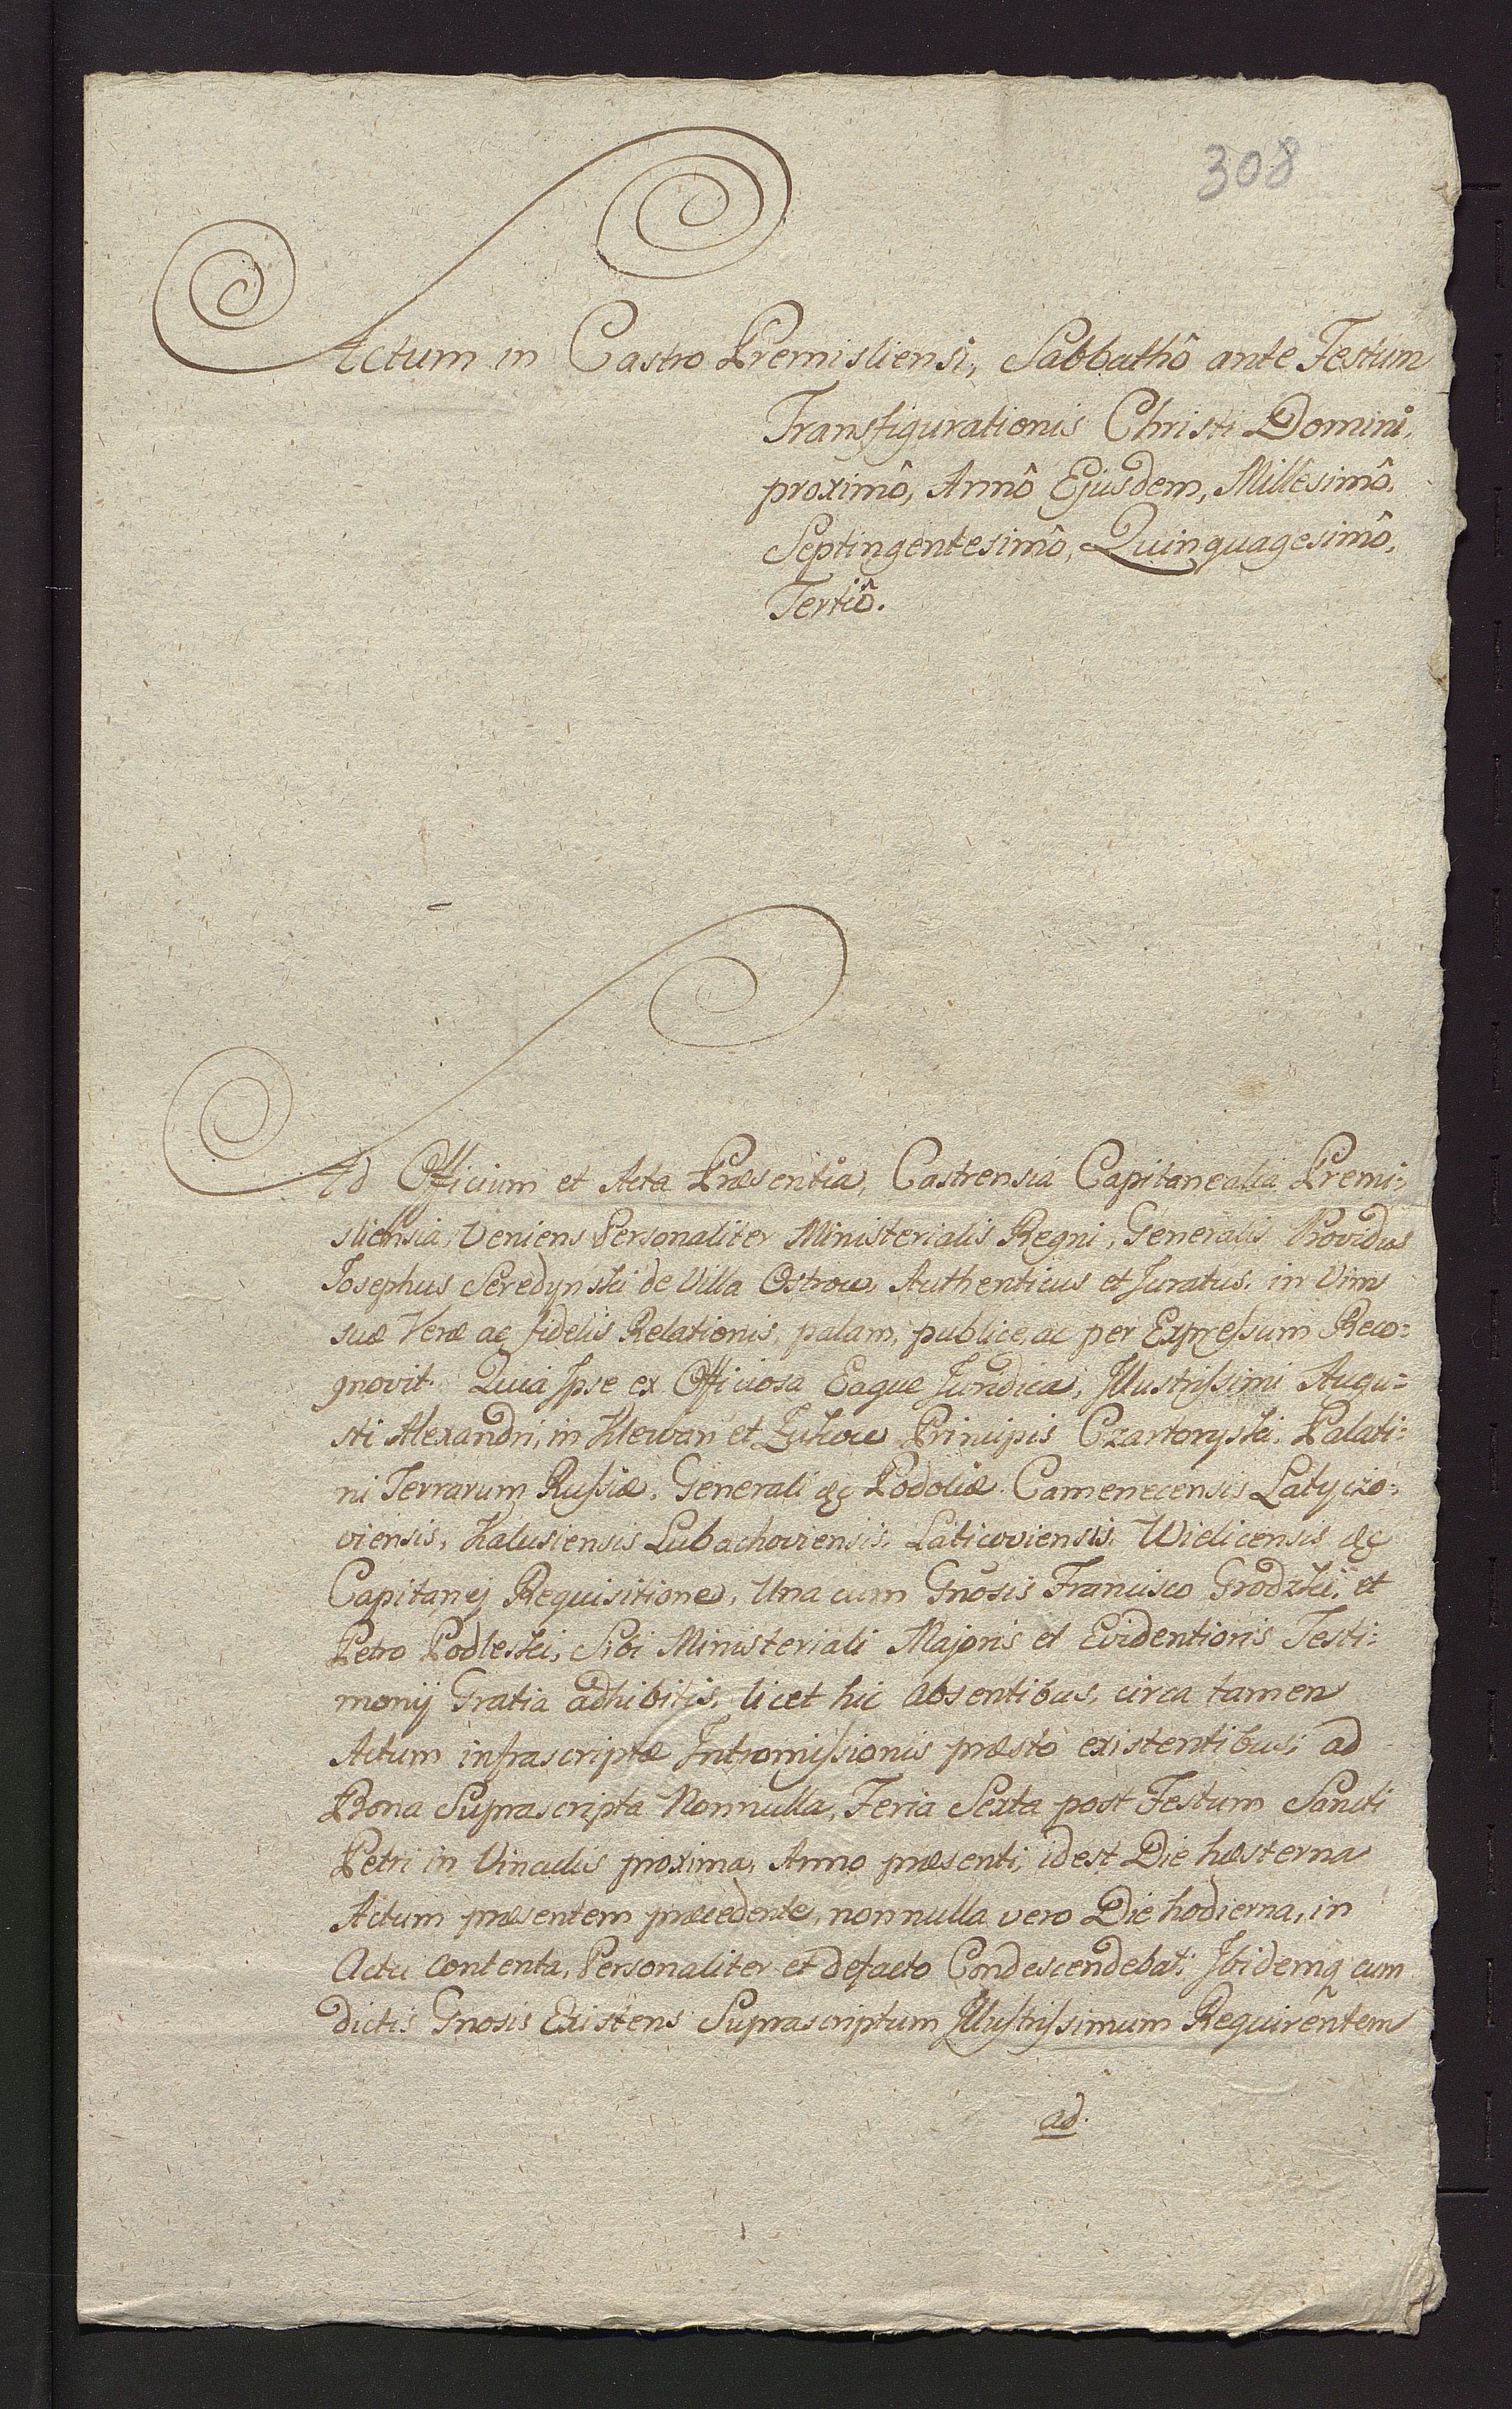 308
Actum in Castro Premisliensi, Sabbathô ante Festum
Transfigurationis Christi Domini,
proximô, Annô Ejusdem, Millesimô,
Septingentesimô, Quinquagesimô,
Tertiô.
Ad Officium et Acta Præsentia, Castrensia Capitanealia Premi:
sliensia, Veniens Personaliter Ministerialis Regni, Generalis Providus
Josephus Seredynski de Villa Ostrow, Authenticus et Juratus, in Vim
suæ Veræ ac fidelis Relationis, palam, publice, ac per Expressum Reco:
gnovit. Quia Ipse ex Officiosa Eaque Juridica, Illustrissimi Augu:
sti Alexandri, in Klewan et Zukow Principis Czartoryski, Palati:
ni Terrarum Russiæ, Generali &c Podoliæ Camenecensis Latyczo:
viensis, Kalusiensis Lubachoviensis, Laticoviensis, Wielicensis &c
Capitanej Requisitione, Una cum Gnôsis Francisco Grodzki, et
Petro Podleski, Sibi Ministeriali Majoris et Evidentioris Testi:
monij Gratia adhibitis, licet hic absentibus, circa tamen
Actum infrascriptæ Intromissionis præsto existentibus, ad
Bona Suprascripta Nonnulla, Feria Sexta post Festum Sancti
Petri in Vinculis proxima, Anno præsenti, idest Die hæsterna
Actum præsentem præcedente, nonnulla vero Die hodierna, in
Actu contenta, Personaliter et defacto Condescendebat, Ibidemq cum
dictis Gnosis Existens Suprascriptum Illustrissimum Requirentem
ad